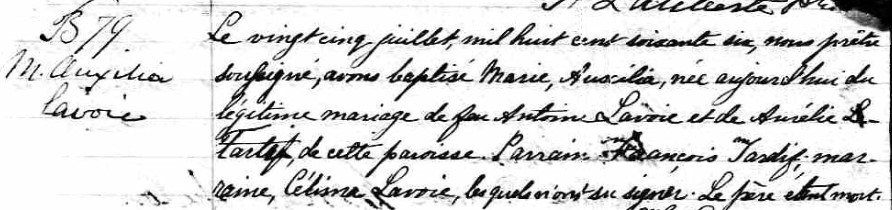 B 79
M. Auxilia
Lavoie
Le vingt cinq juillet, mil huit cent soixante six, nous prêtre
soussigné, avons baptisé Marie, Auxilia, née aujourd'hui du
légitime mariage de feu Antoine Lavoie et de Aurélie
Tardif, de cette paroisse. Parrain François Tardif, mar-
raine, Célima Lavoie, lesquels n'ont su signer. Le père étant mort.